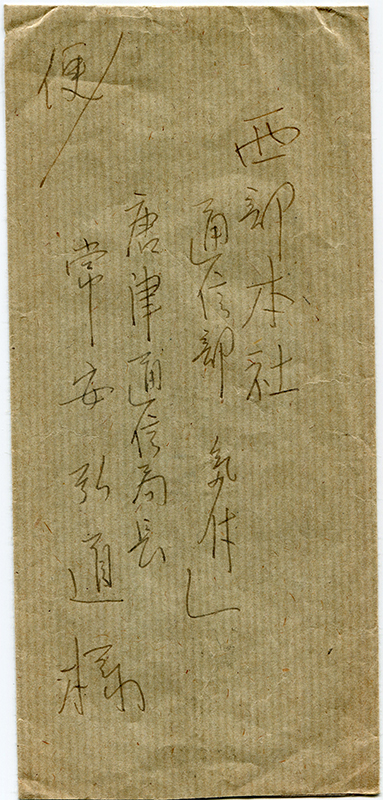 西部本社
通信部 気付
唐津通信局長
常安弘道様
便